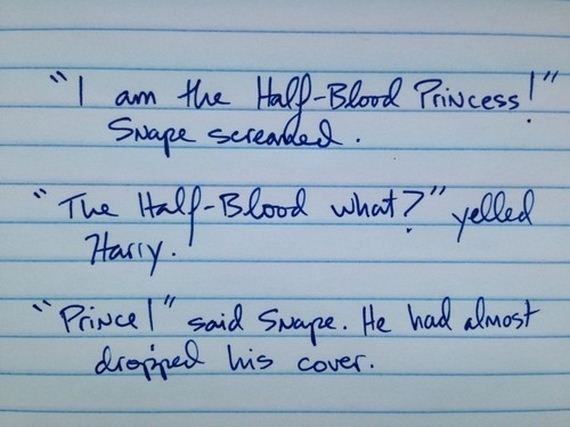 "I am the Half-Blood Princess!"
Snape screamed.
"The Half-Blood what?" yelled
Harry.
"Prince!" said Snape. He had almost
dropped his cover.